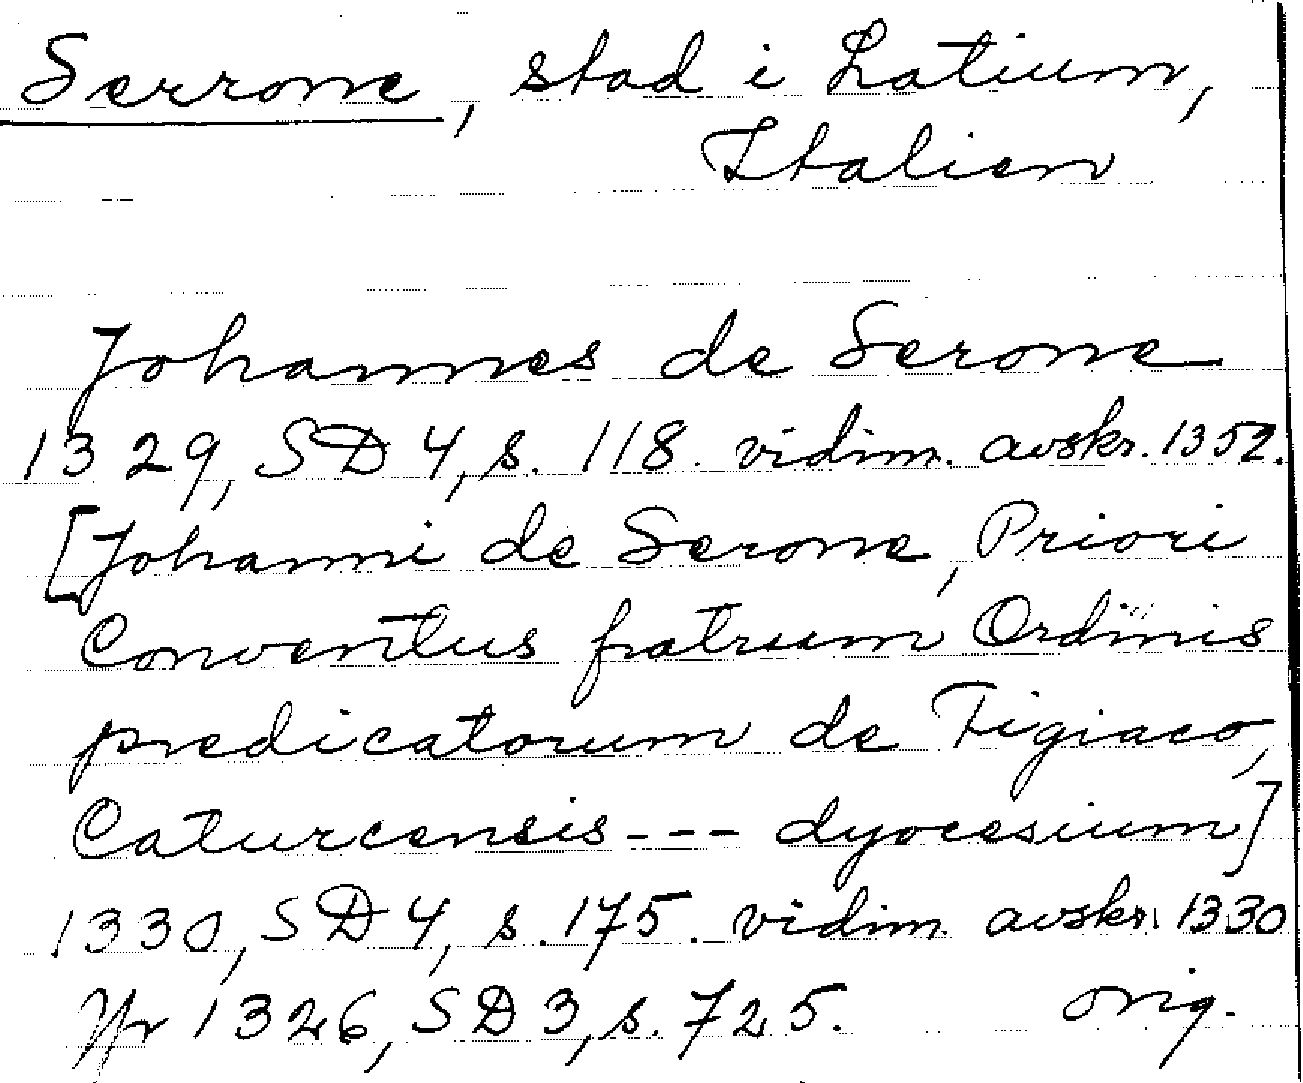 Serrone, stad i Latium,
Italien
Johannes de Serone
1329, SD 4, s. 118. vidim. avskr. 1352.
[Johanni de Serone, Priori
Conventus fratrum Ordinis
predicatorum de Figiaco,
Caturcensis --- dyocesium]
1330, SD 4, s. 175. vidim. avskr. 1330
Jfr 1326, SD 3, s. 725. orig.